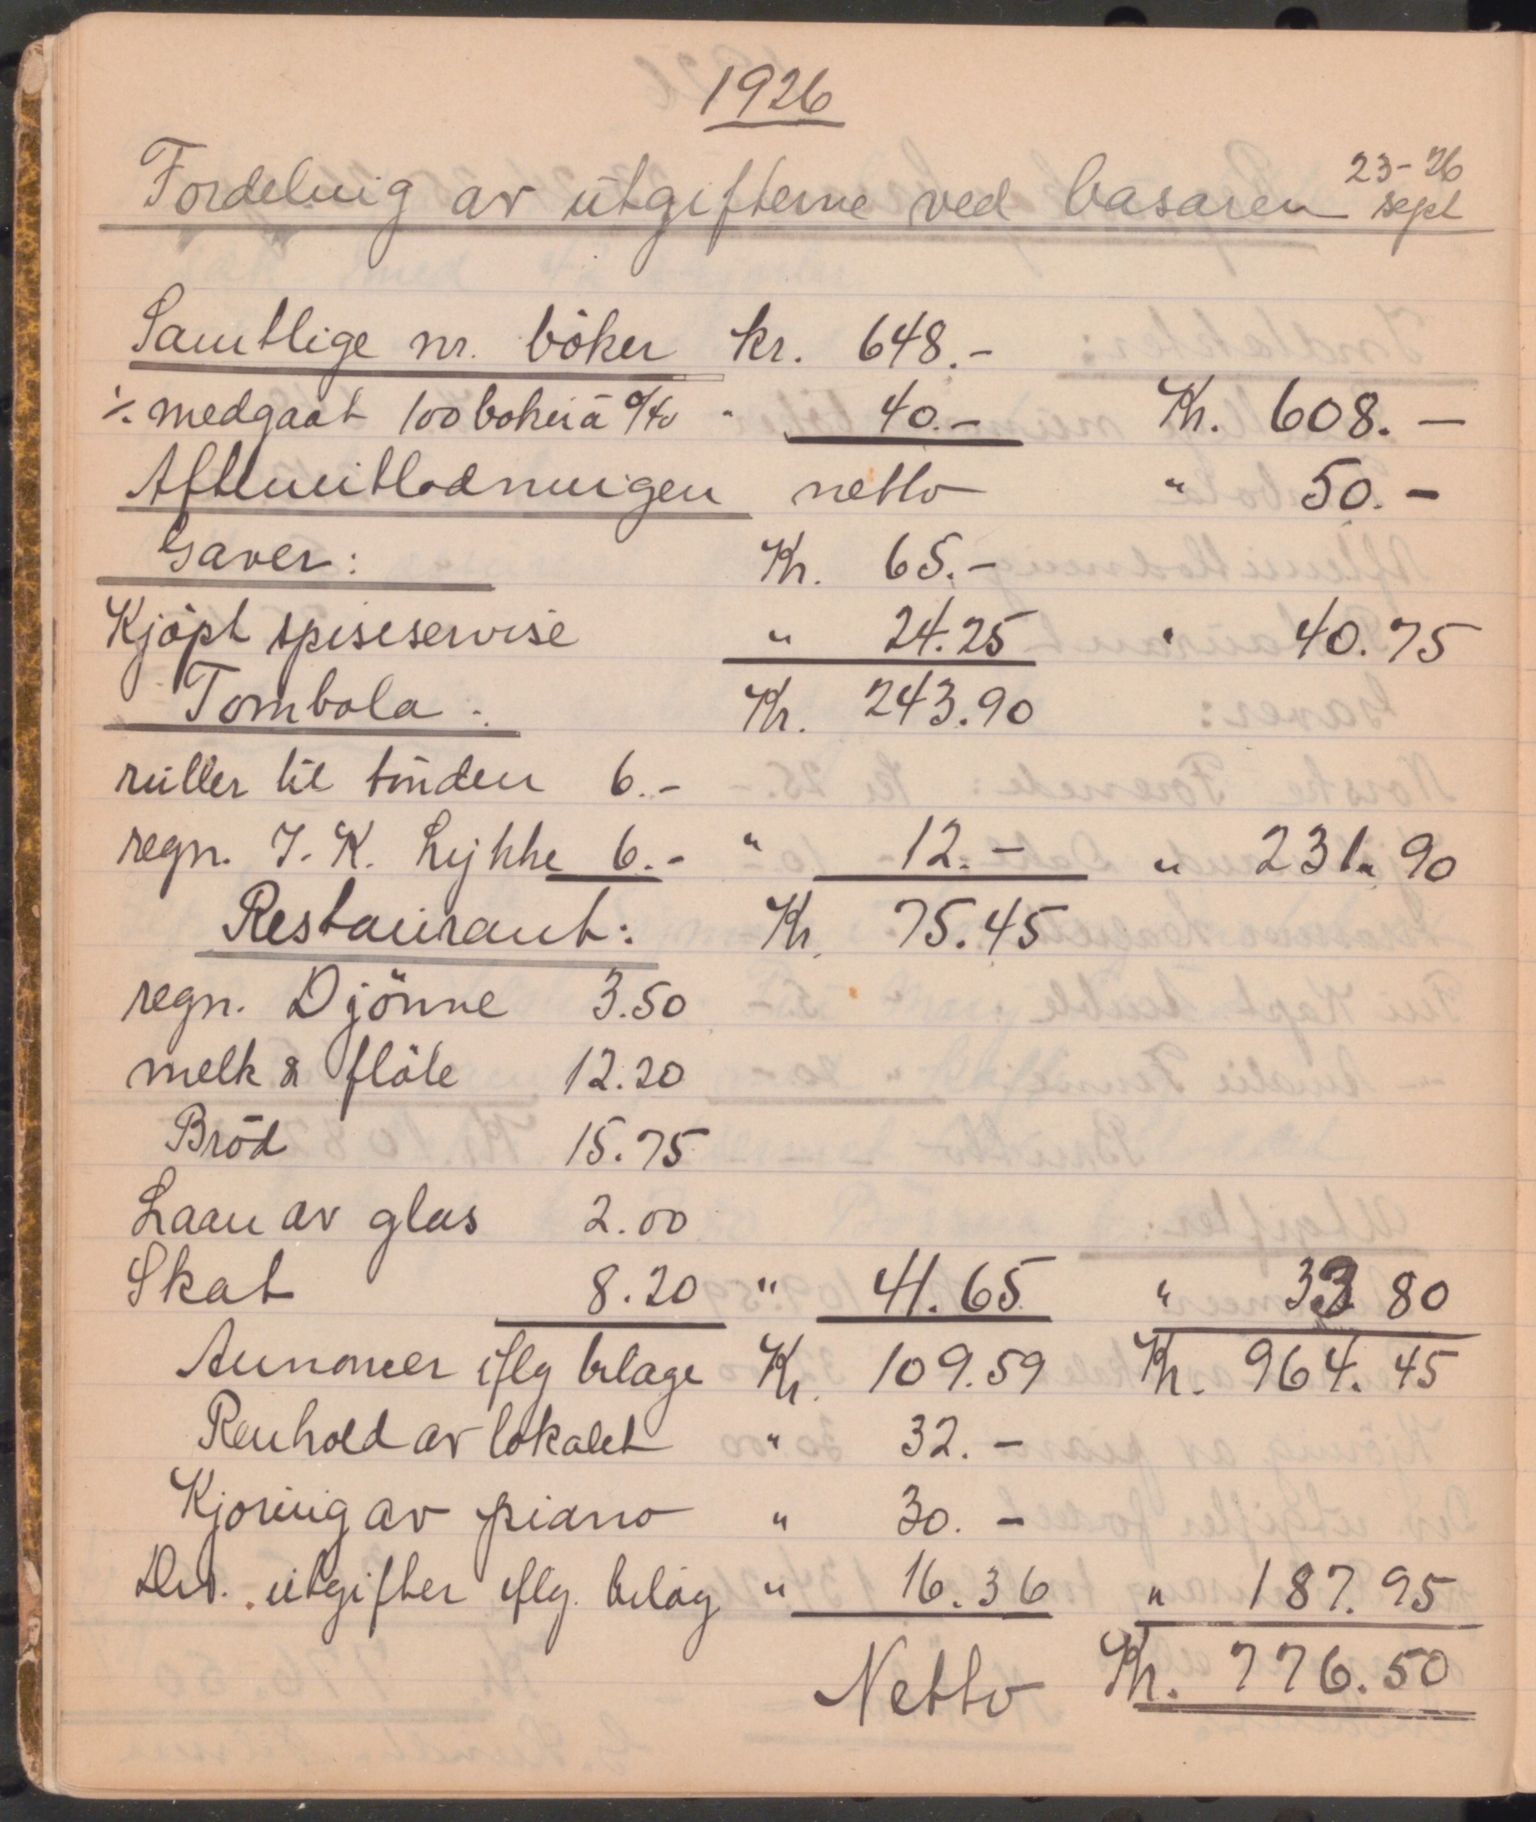 1926
Fordeling av utgifterne ved basaren 23-26 sept
Samtlige nr. böker kr. 648.-
% medgaat 100 bøker à 0/40 " 40.- Kr. 608.-
Aftenutlodningen netto " 50.-
Gaver: Kr. 65.-
Kjöpt spiseservise " 24.25 " 40.75
Tombola: Kr. 243.90
ruller til tönden 6.-
regn. I. K. Lykke 6.- " 12.- " 231.90
Restaurant: Kr. 75.45
regn. Djönne 3.50
melk & flöte 12.20
Bröd 15.75
Laan av glas 2.00
Skat 8.20 " 41.65 " 33 80
Annoncer iflg bilage Kr. 109.59 Kr. 964.45
Renhold av lokalet " 32.-
Kjoring av piano " 30.-
Div. utgifter iflg. bilag " 16.36 " 187.95
Netto Kr. 776.50